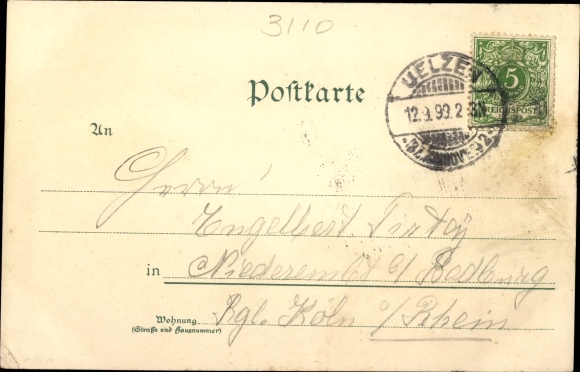 3110
UELZEN
12.9.99.2-3N
*(BZ. HANNOVER)2*
5
REICHSPOST
Postkarte
An
Herrn
Engelbert
in Niederembt b/ Bedburg
Wohnung
(Straße und Hausnummer)
Rgb. Köln a/Rhein